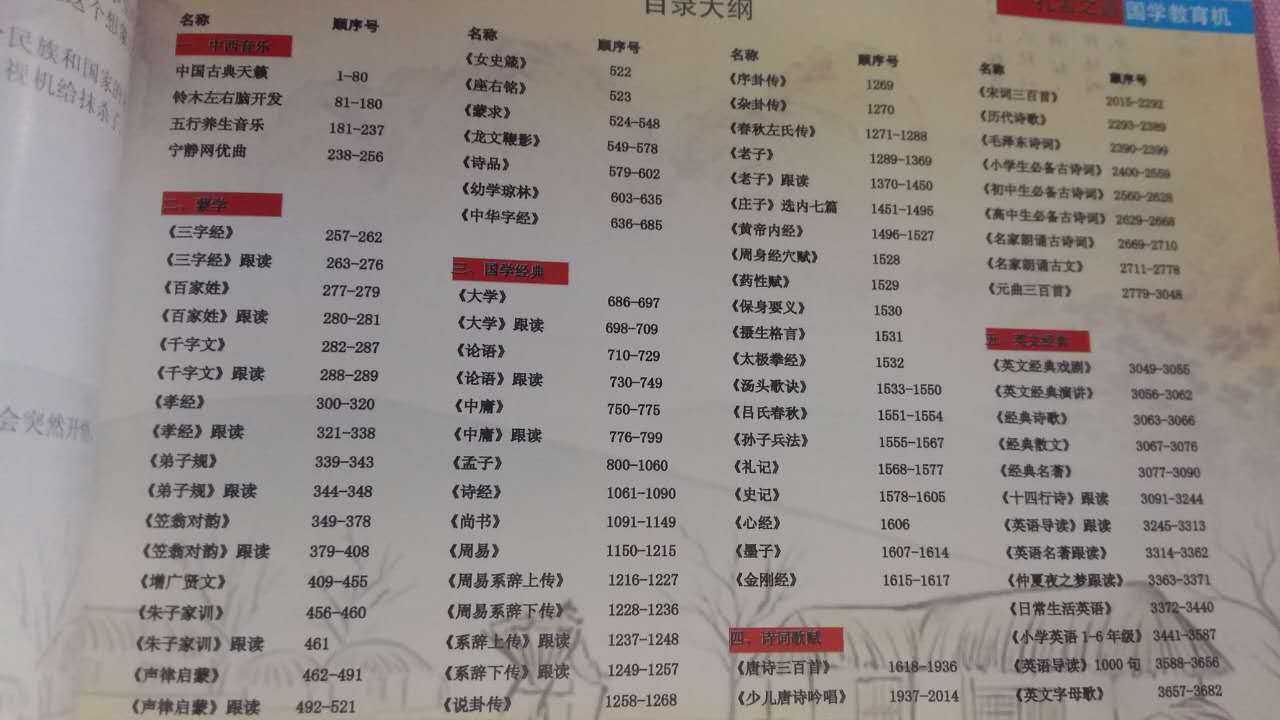 这个想象
民族和国家的
视机给抹杀了
会突然开
目录大纲
孔孟之道 国学教育机
名称 顺序号
一、中西音乐
中国古典天籁 1-80
铃木左右脑开发 81-180
五行养生音乐 181-237
宁静网优曲 238-256
二、蒙学
《三字经》 257-262
《三字经》跟读 263-276
《百家姓》 277-279
《百家姓》跟读 280-281
《千字文》 282-287
《千字文》跟读 288-289
《孝经》 300-320
《孝经》跟读 321-338
《弟子规》 339-343
《弟子规》跟读 344-348
《笠翁对韵》 349-378
《笠翁对韵》跟读 379-408
《增广贤文》 409-455
《朱子家训》 456-460
《朱子家训》跟读 461
《声律启蒙》 462-491
《声律启蒙》跟读 492-521
名称 顺序号
《女史箴》 522
《座右铭》 523
《蒙求》 524-548
《龙文鞭影》 549-578
《诗品》 579-602
《幼学琼林》 603-635
《中华字经》 636-685
三、国学经典
《大学》 686-697
《大学》跟读 698-709
《论语》 710-729
《论语》跟读 730-749
《中庸》 750-775
《中庸》跟读 776-799
《孟子》 800-1060
《诗经》 1061-1090
《尚书》 1091-1149
《周易》 1150-1215
《周易系辞上传》 1216-1227
《周易系辞下传》 1228-1236
《系辞上传》跟读 1237-1248
《系辞下传》跟读 1249-1257
《说卦传》 1258-1268
名称 顺序号
《序卦传》 1269
《杂卦传》 1270
《春秋左氏传》 1271-1288
《老子》 1289-1369
《老子》跟读 1370-1450
《庄子》选内七篇 1451-1495
《黄帝内经》 1496-1527
《周身经穴赋》 1528
《药性赋》 1529
《保身要义》 1530
《摄生格言》 1531
《太极拳经》 1532
《汤头歌诀》 1533-1550
《吕氏春秋》 1551-1554
《孙子兵法》 1555-1567
《礼记》 1568-1577
《史记》 1578-1605
《心经》 1606
《墨子》 1607-1614
《金刚经》 1615-1617
四、诗词歌赋
《唐诗三百首》 1618-1936
《少儿唐诗吟唱》 1937-2014
名称 顺序号
《宋词三百首》 2015-2292
《历代诗歌》 2293-2389
《毛泽东诗词》 2390-2399
《小学生必备古诗词》 2400-2559
《初中生必备古诗词》 2560-2628
《高中生必备古诗词》 2629-2668
《名家朗诵古诗词》 2669-2710
《名家朗诵古文》 2711-2778
《元曲三百首》 2779-3048
五、英文经典
《英文经典戏剧》 3049-3055
《英文经典演讲》 3056-3062
《经典诗歌》 3063-3066
《经典散文》 3067-3076
《经典名著》 3077-3090
《十四行诗》跟读 3091-3244
《英语导读》跟读 3245-3313
《英语名著跟读》 3314-3362
《仲夏夜之梦跟读》 3363-3371
《日常生活英语》 3372-3440
《小学英语1-6年级》 3441-3587
《英语导读》1000句 3588-3656
《英文字母歌》 3657-3682